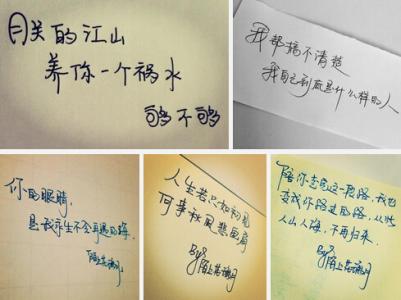 朕的江山
养你一个祸水
够不够
我都搞不清楚
我自己到底是什么样的人
你的眼睛,
是我余生不会再遇的海.
人生若只如初见
何事秋风悲画扇
By 陌上花
陪你走完这一段路,我也
变成你路过的路,从此
人山人海,不再归来.
By 陌上花